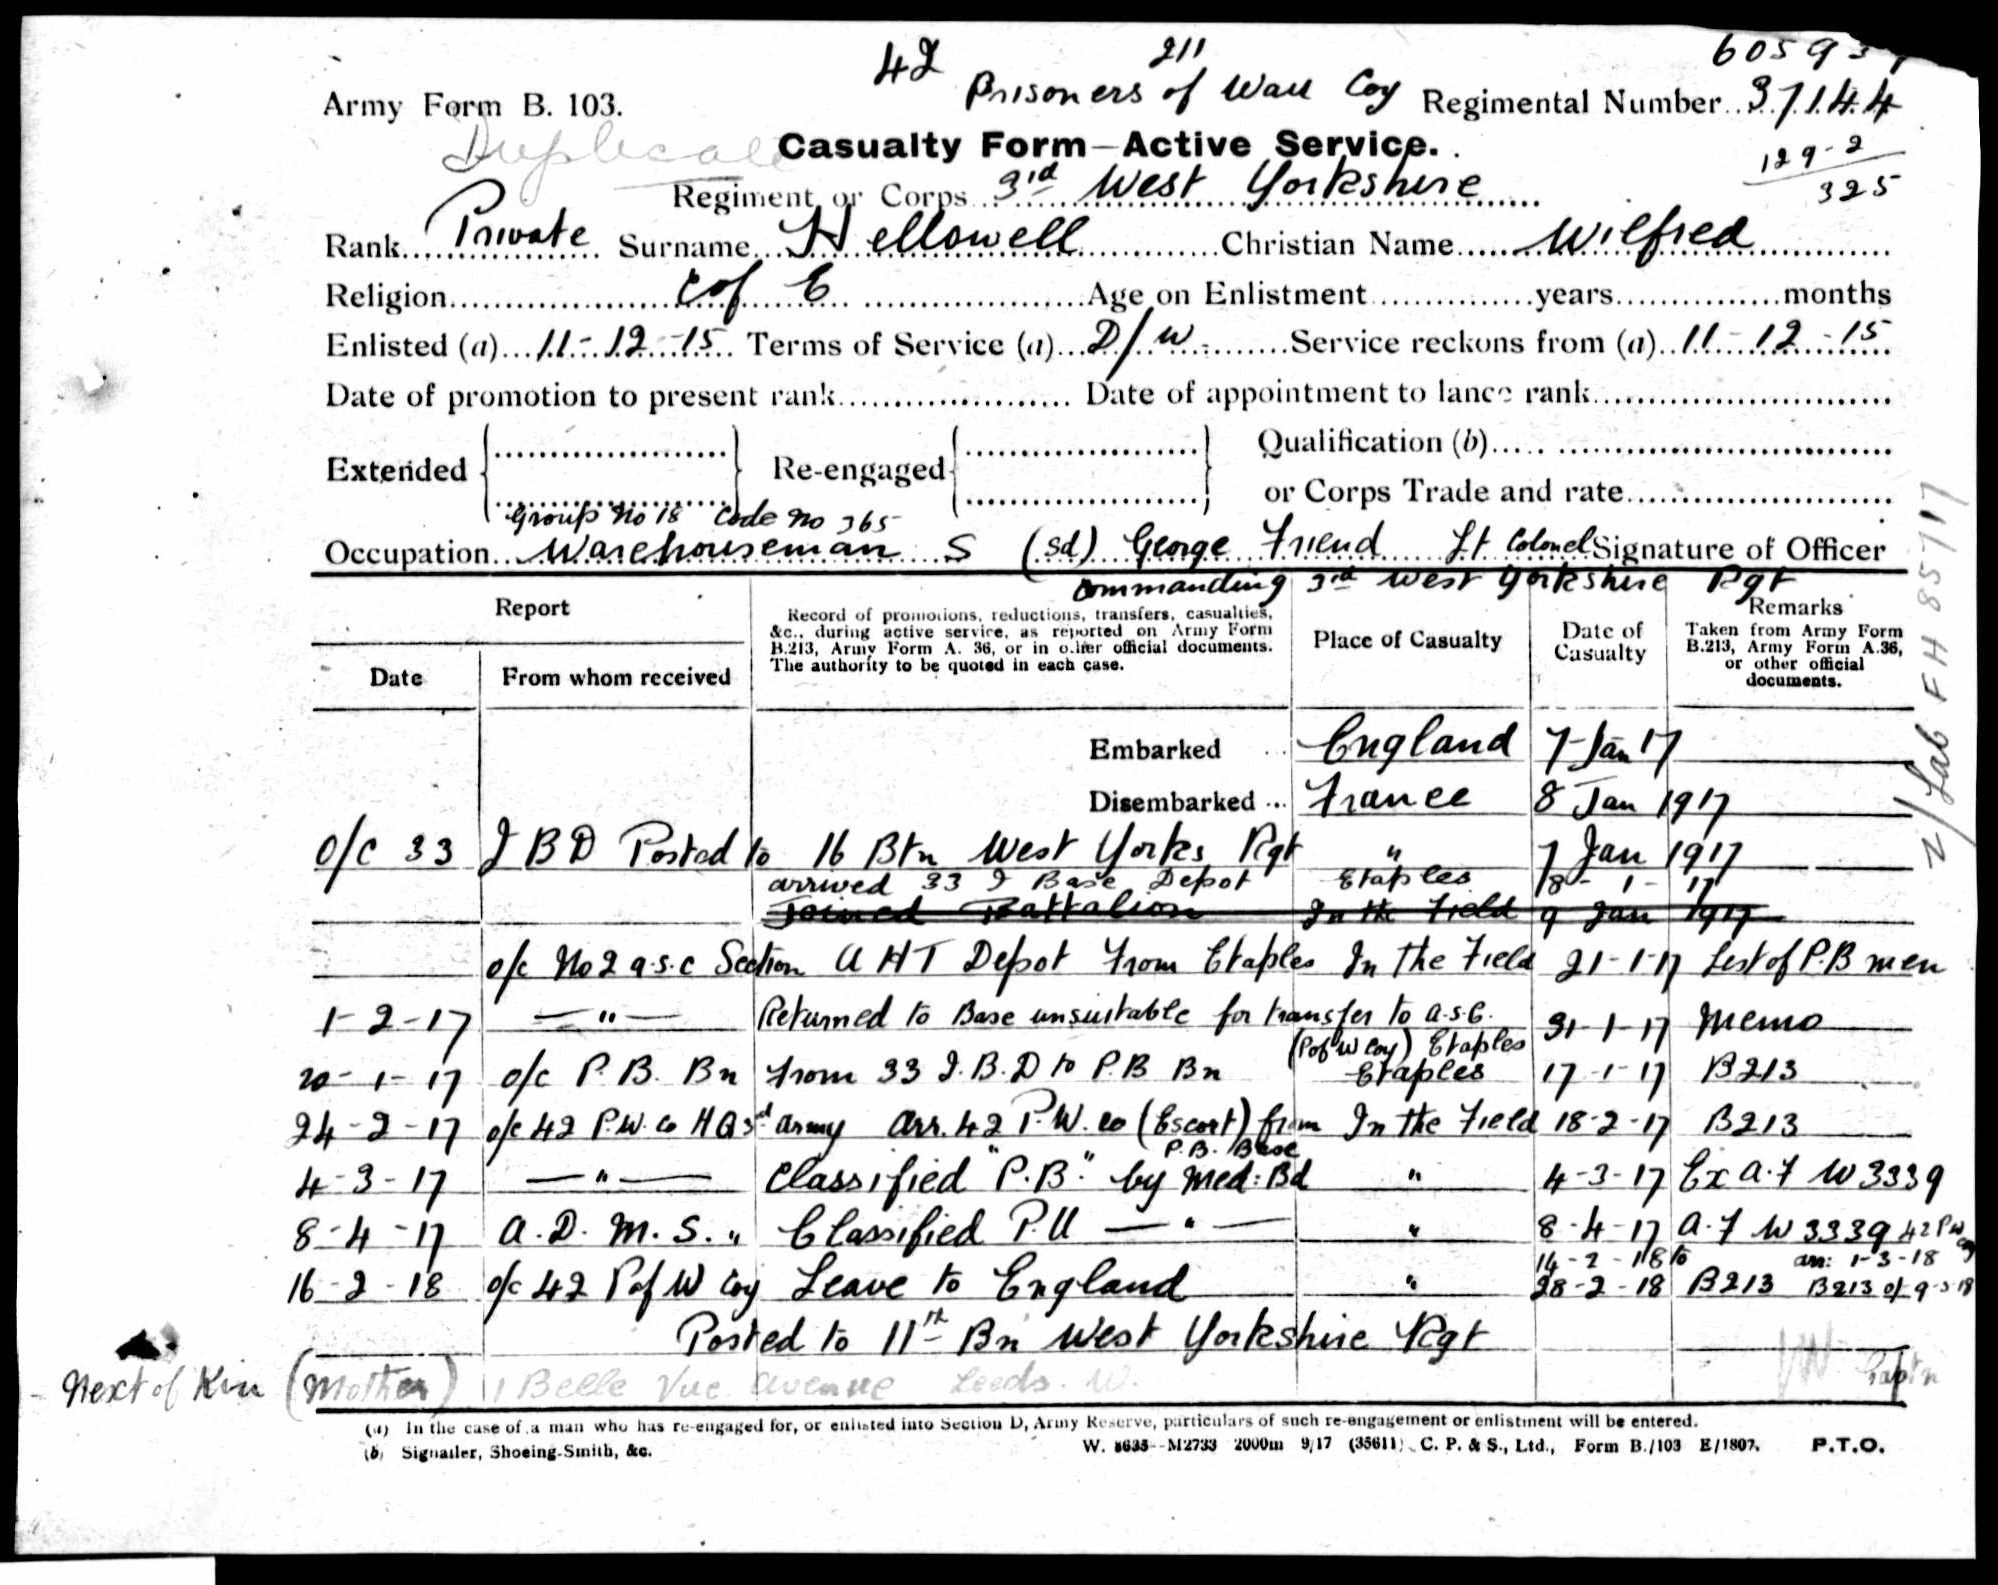 42 211 60593
Prisoners of War Coy
Army Form B. 103. Regimental Number 37144
Duplicate
Casualty Form—Active Service.
129-2
325
Regiment or Corps 3rd West Yorkshire
Rank Private Surname Hellowell Christian Name Wilfred
Religion C of E Age on Enlistment years months
Enlisted (a) 11-12-15 Terms of Service (a) D/W. Service reckons from (a) 11-12-15
Date of promotion to present rank Date of appointment to lance rank
Extended Re-engaged Qualification (b)
or Corps Trade and rate
Group No 18 Code No 365
Occupation Warehouseman S (Sd) George Friend Lt Colonel Signature of Officer
Commanding 3rd West Yorkshire Rgt
Report
Date From whom received
Record of promotions, reductions, transfers, casualties, &c., during active service, as reported on Army Form B.213, Army Form A. 36, or in other official documents. The authority to be quoted in each case.
Place of Casualty
Date of Casualty
Remarks
Taken from Army Form B.213, Army Form A.36, or other official documents.
Embarked England 7 Jan 17
Disembarked ... France 8 Jan 1917
O/C 33 I B D Posted to 16 Btn West Yorks Rgt " 7 Jan 1917
arrived 33 I Base Depot Etaples 8-1-17
Joined Battalion In the Field 9 Jan 1917
o/c No 2 a.s.c Section A H T Depot From Etaples In the Field 21-1-17 List of P.B men
1-2-17 —"— Returned to Base unsuitable for transfer to a.s.c. 31-1-17 Memo
(P of W Coy) Etaples
20-1-17 o/c P.B. Bn From 33 I.B.D to P.B Bn Etaples 17-1-17 B213
24-2-17 o/c 42 P.W. co H Q 3rd army Arr. 42 P.W. co (Escort) from In the Field 18-2-17 B213
P.B. Base
4-3-17 —"— Classified "P.B." by Med: Bd " 4-3-17 Ex A.F W 3339
8-4-17 A.D.M.S. " Classified P.U —"— " 8-4-17 A.F W 3339 42 PW Coy
14-2-18 to arr: 1-3-18
16-2-18 o/c 42 P of W Coy Leave to England " 28-2-18 B213 B213 of 9-3-18
Posted to 11th Bn West Yorkshire Rgt
Next of Kin (Mother) 1 Belle Vue Avenue Leeds. W. Captn
(a) In the case of a man who has re-engaged for, or enlisted into Section D, Army Reserve, particulars of such re-engagement or enlistment will be entered.
(b) Signaller, Shoeing-Smith, &c. W. 8635—M2733 2000m 9/17 (35611) C. P. & S., Ltd., Form B./103 E/1807. P.T.O.